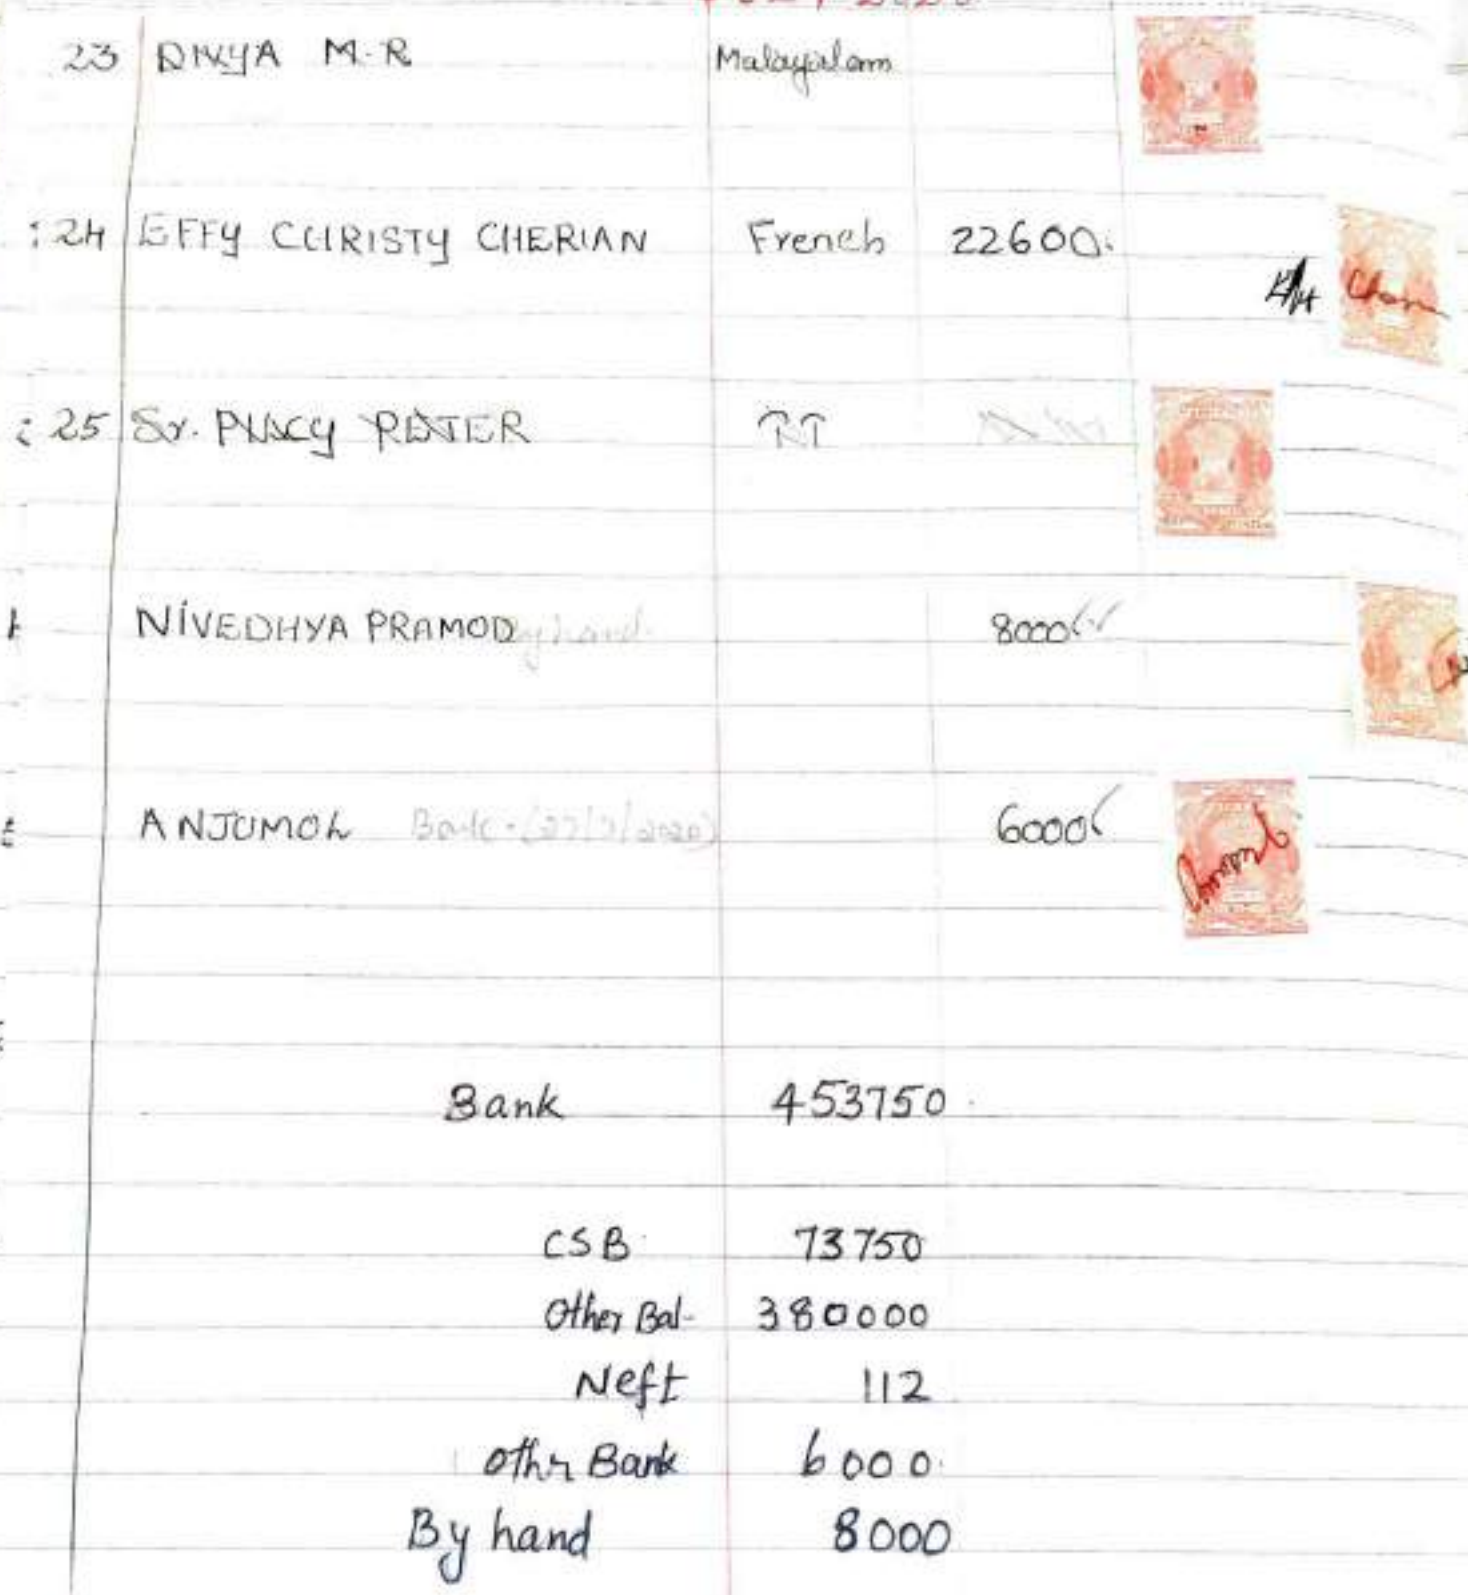 23 DIVYA M.R Malayalam
24 EFFY CHRISTY CHERIAN French 22600
25 Sr.
NIVEDHYA PRAMOD By hand 8000
ANJUMOL Bank (27/7/2020) 6000
Bank 453750
CSB 73750
Other Bal- 380000
Neft 112
Othr Bank 6000
By hand 8000